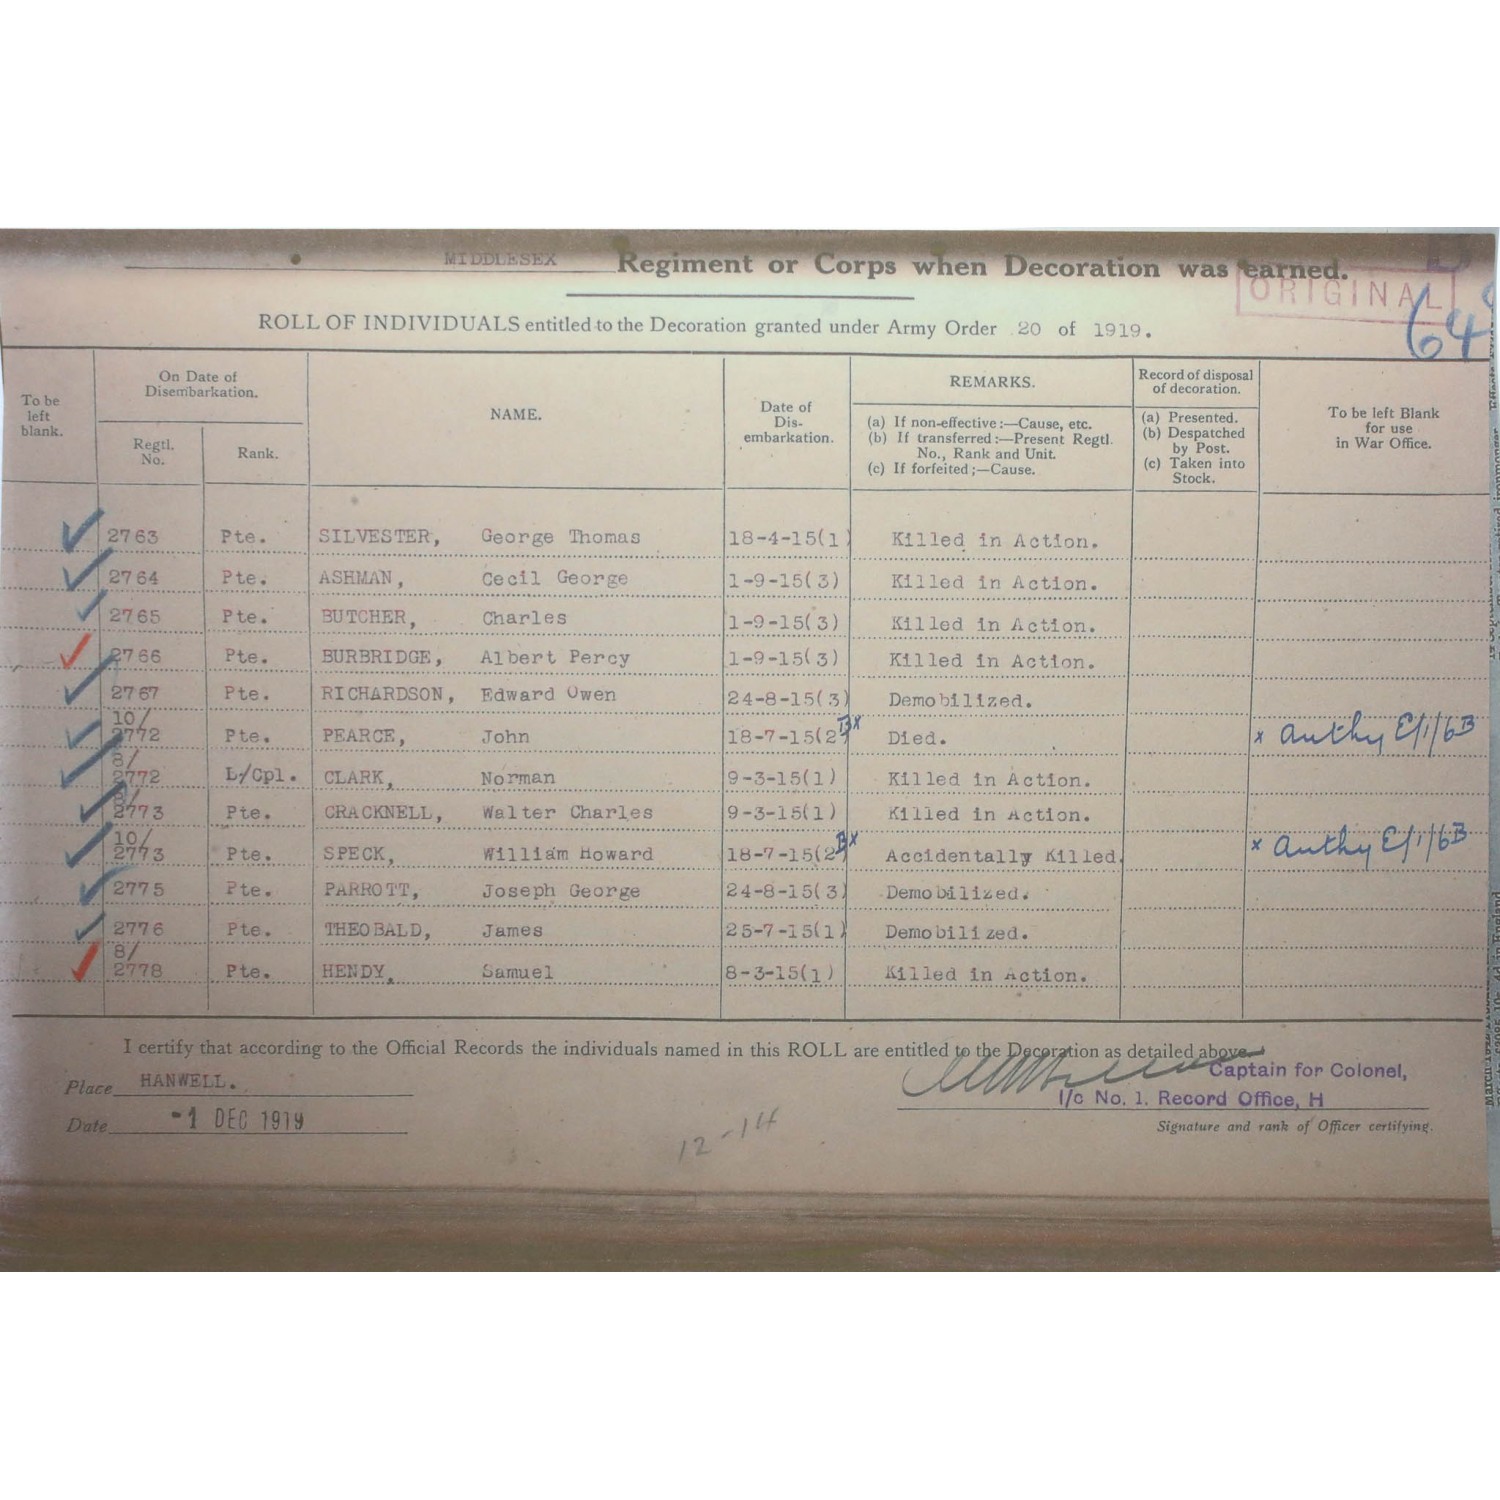 MIDDLESEX Regiment or Corps when Decoration was earned.
ORIGINAL
64
ROLL OF INDIVIDUALS entitled to the Decoration granted under Army Order 20 of 1919.
To be left blank.
On Date of Disembarkation.
Regtl. No.
Rank.
NAME.
Date of Dis-embarkation.
REMARKS.
(a) If non-effective:—Cause, etc.
(b) If transferred:—Present Regtl. No., Rank and Unit.
(c) If forfeited;—Cause.
Record of disposal of decoration.
(a) Presented.
(b) Despatched by Post.
(c) Taken into Stock.
To be left Blank for use in War Office.
2763 Pte. SILVESTER, George Thomas 18-4-15(1) Killed in Action.
2764 Pte. ASHMAN, Cecil George 1-9-15(3) Killed in Action.
2765 Pte. BUTCHER, Charles 1-9-15(3) Killed in Action.
2766 Pte. BURBRIDGE, Albert Percy 1-9-15(3) Killed in Action.
2767 Pte. RICHARDSON, Edward Owen 24-8-15(3) Demobilized.
10/2772 Pte. PEARCE, John 18-7-15(2)Bx Died. x Authy E/1/6B
8/2772 L/Cpl. CLARK, Norman 9-3-15(1) Killed in Action.
8/2773 Pte. CRACKNELL, Walter Charles 9-3-15(1) Killed in Action.
10/2773 Pte. SPECK, William Howard 18-7-15(2)Bx Accidentally Killed. x Authy E/1/6B
2775 Pte. PARROTT, Joseph George 24-8-15(3) Demobilized.
2776 Pte. THEOBALD, James 25-7-15(1) Demobilized.
8/2778 Pte. HENDY, Samuel 8-3-15(1) Killed in Action.
I certify that according to the Official Records the individuals named in this ROLL are entitled to the Decoration as detailed above.
Place HANWELL.
Captain for Colonel,
I/c No. 1. Record Office, H
Date -1 DEC 1919
Signature and rank of Officer certifying.
12-14